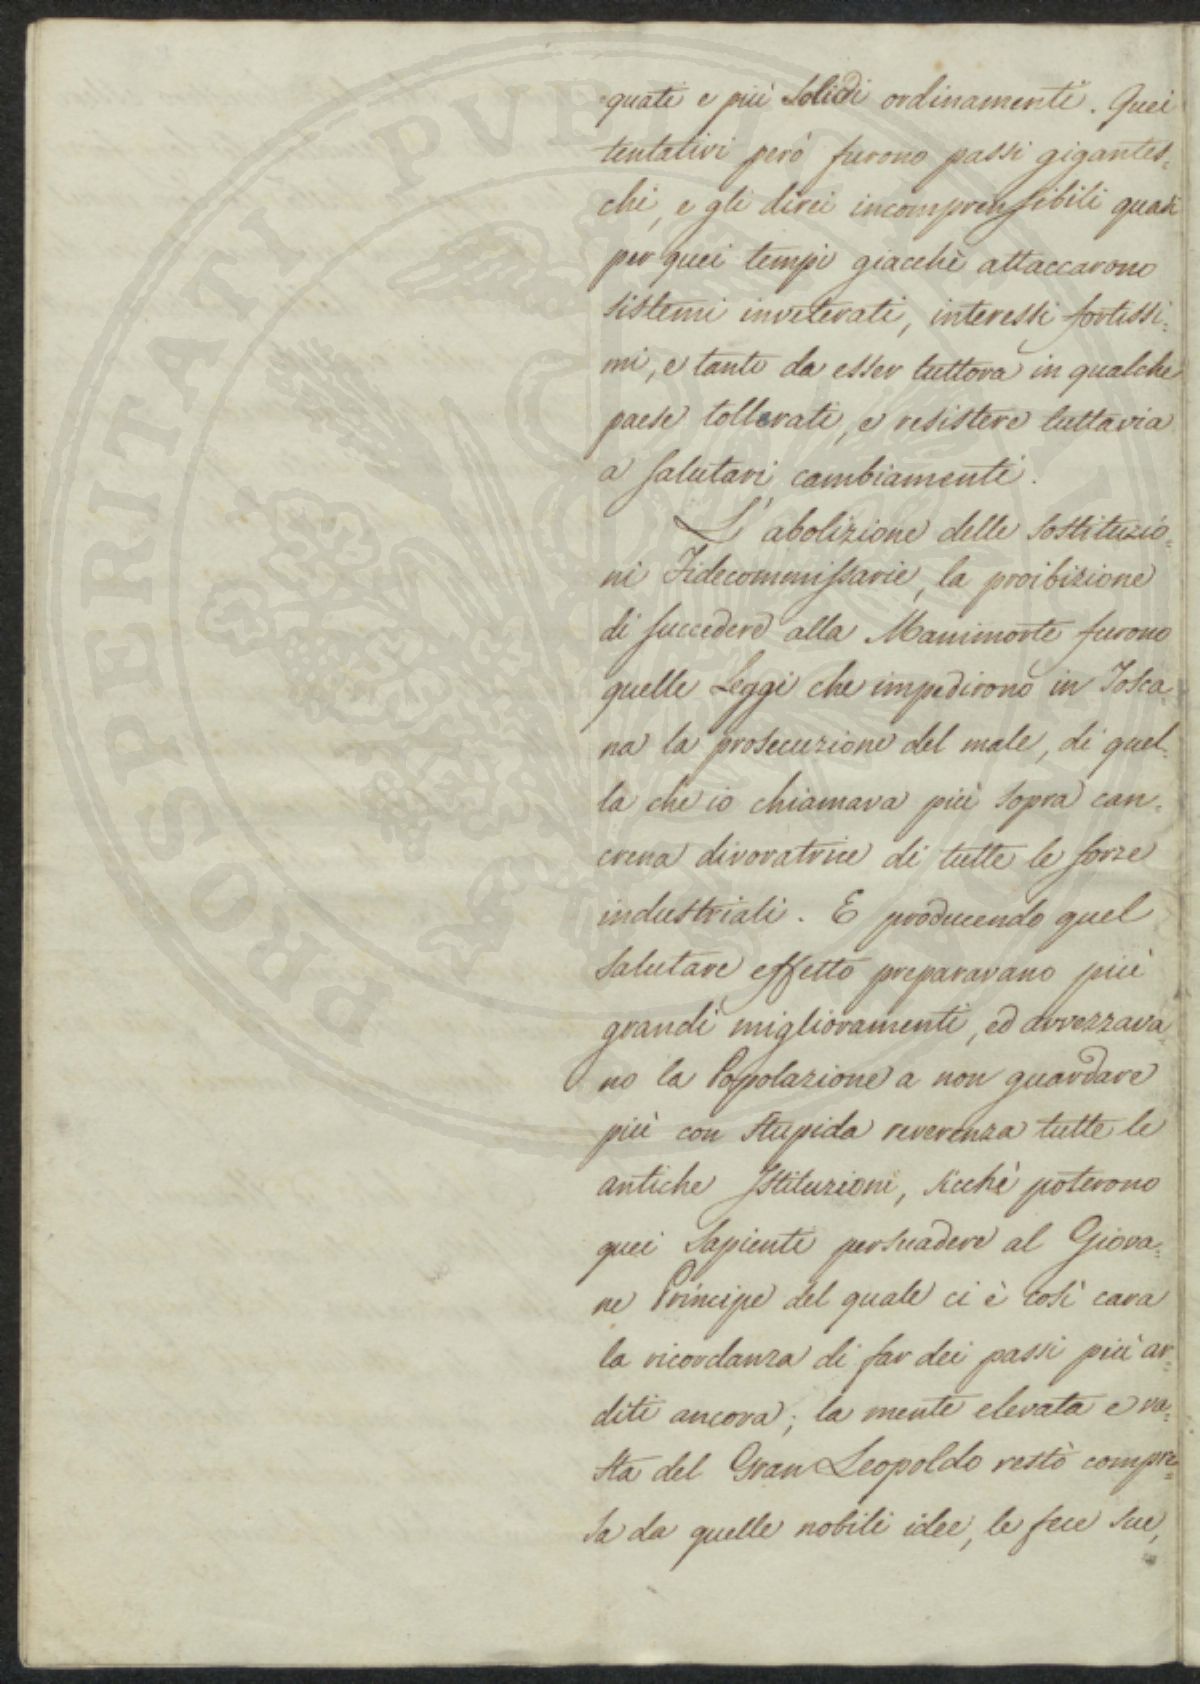 quati e più solidi ordinamenti. Quei
tentativi però furono passi gigantes=
chi, e gli direi incomprensibili quasi
per quei tempi giacchè attaccarono
sistemi inveterati, interessi fortissi=
mi, e tanti da esser tuttora in qualche
paese tollerati, e resistere tuttavia
a salutari cambiamenti.
L'abolizione delle Sostituzio=
ni Fidecommissarie, la proibizione
di succedere alla Manimorte furono
quelle Leggi che impedirono in Tosca=
na la prosecuzione del male, di quel=
la che io chiamava più sopra can=
crena divoratrice di tutte le forze
industriali. E producendo quel
salutare effetto preparavano più
grandi miglioramenti, ed avvezzava=
no la Popolazione a non guardare
più con stupida reverenza tutte le
antiche Istituzioni, sicchè poterono
quei Sapienti persuadere al Giova=
ne Principe del quale ci è così cara
la ricordanza di far dei passi più ar=
diti ancora; la mente elevata e va=
sta del Gran Leopoldo restò compre=
sa da quelle nobili idee, le fece sue,
PROSPERITATI PVBLICAE